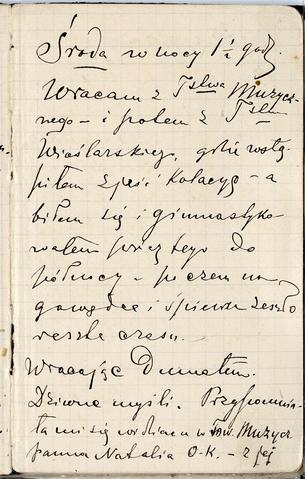 Środa w nocy 1½ godz.
Wracam z Tstwa Muzycz-
nego – i potem z Tstwa
Wioślarskiego, gdzie wstą-
piłem zjeść kolacyę – a
biłem się i gimnastyko-
wałem prócz tego do
północy – poczem na
gawędce i śpiewie zeszło
reszta czasu.
Wracając Dumałem.
Dziwne myśli. Przypomnia-
ła mi się widziana w Tow. Muzycz
panna Natalia O-K. – z jej